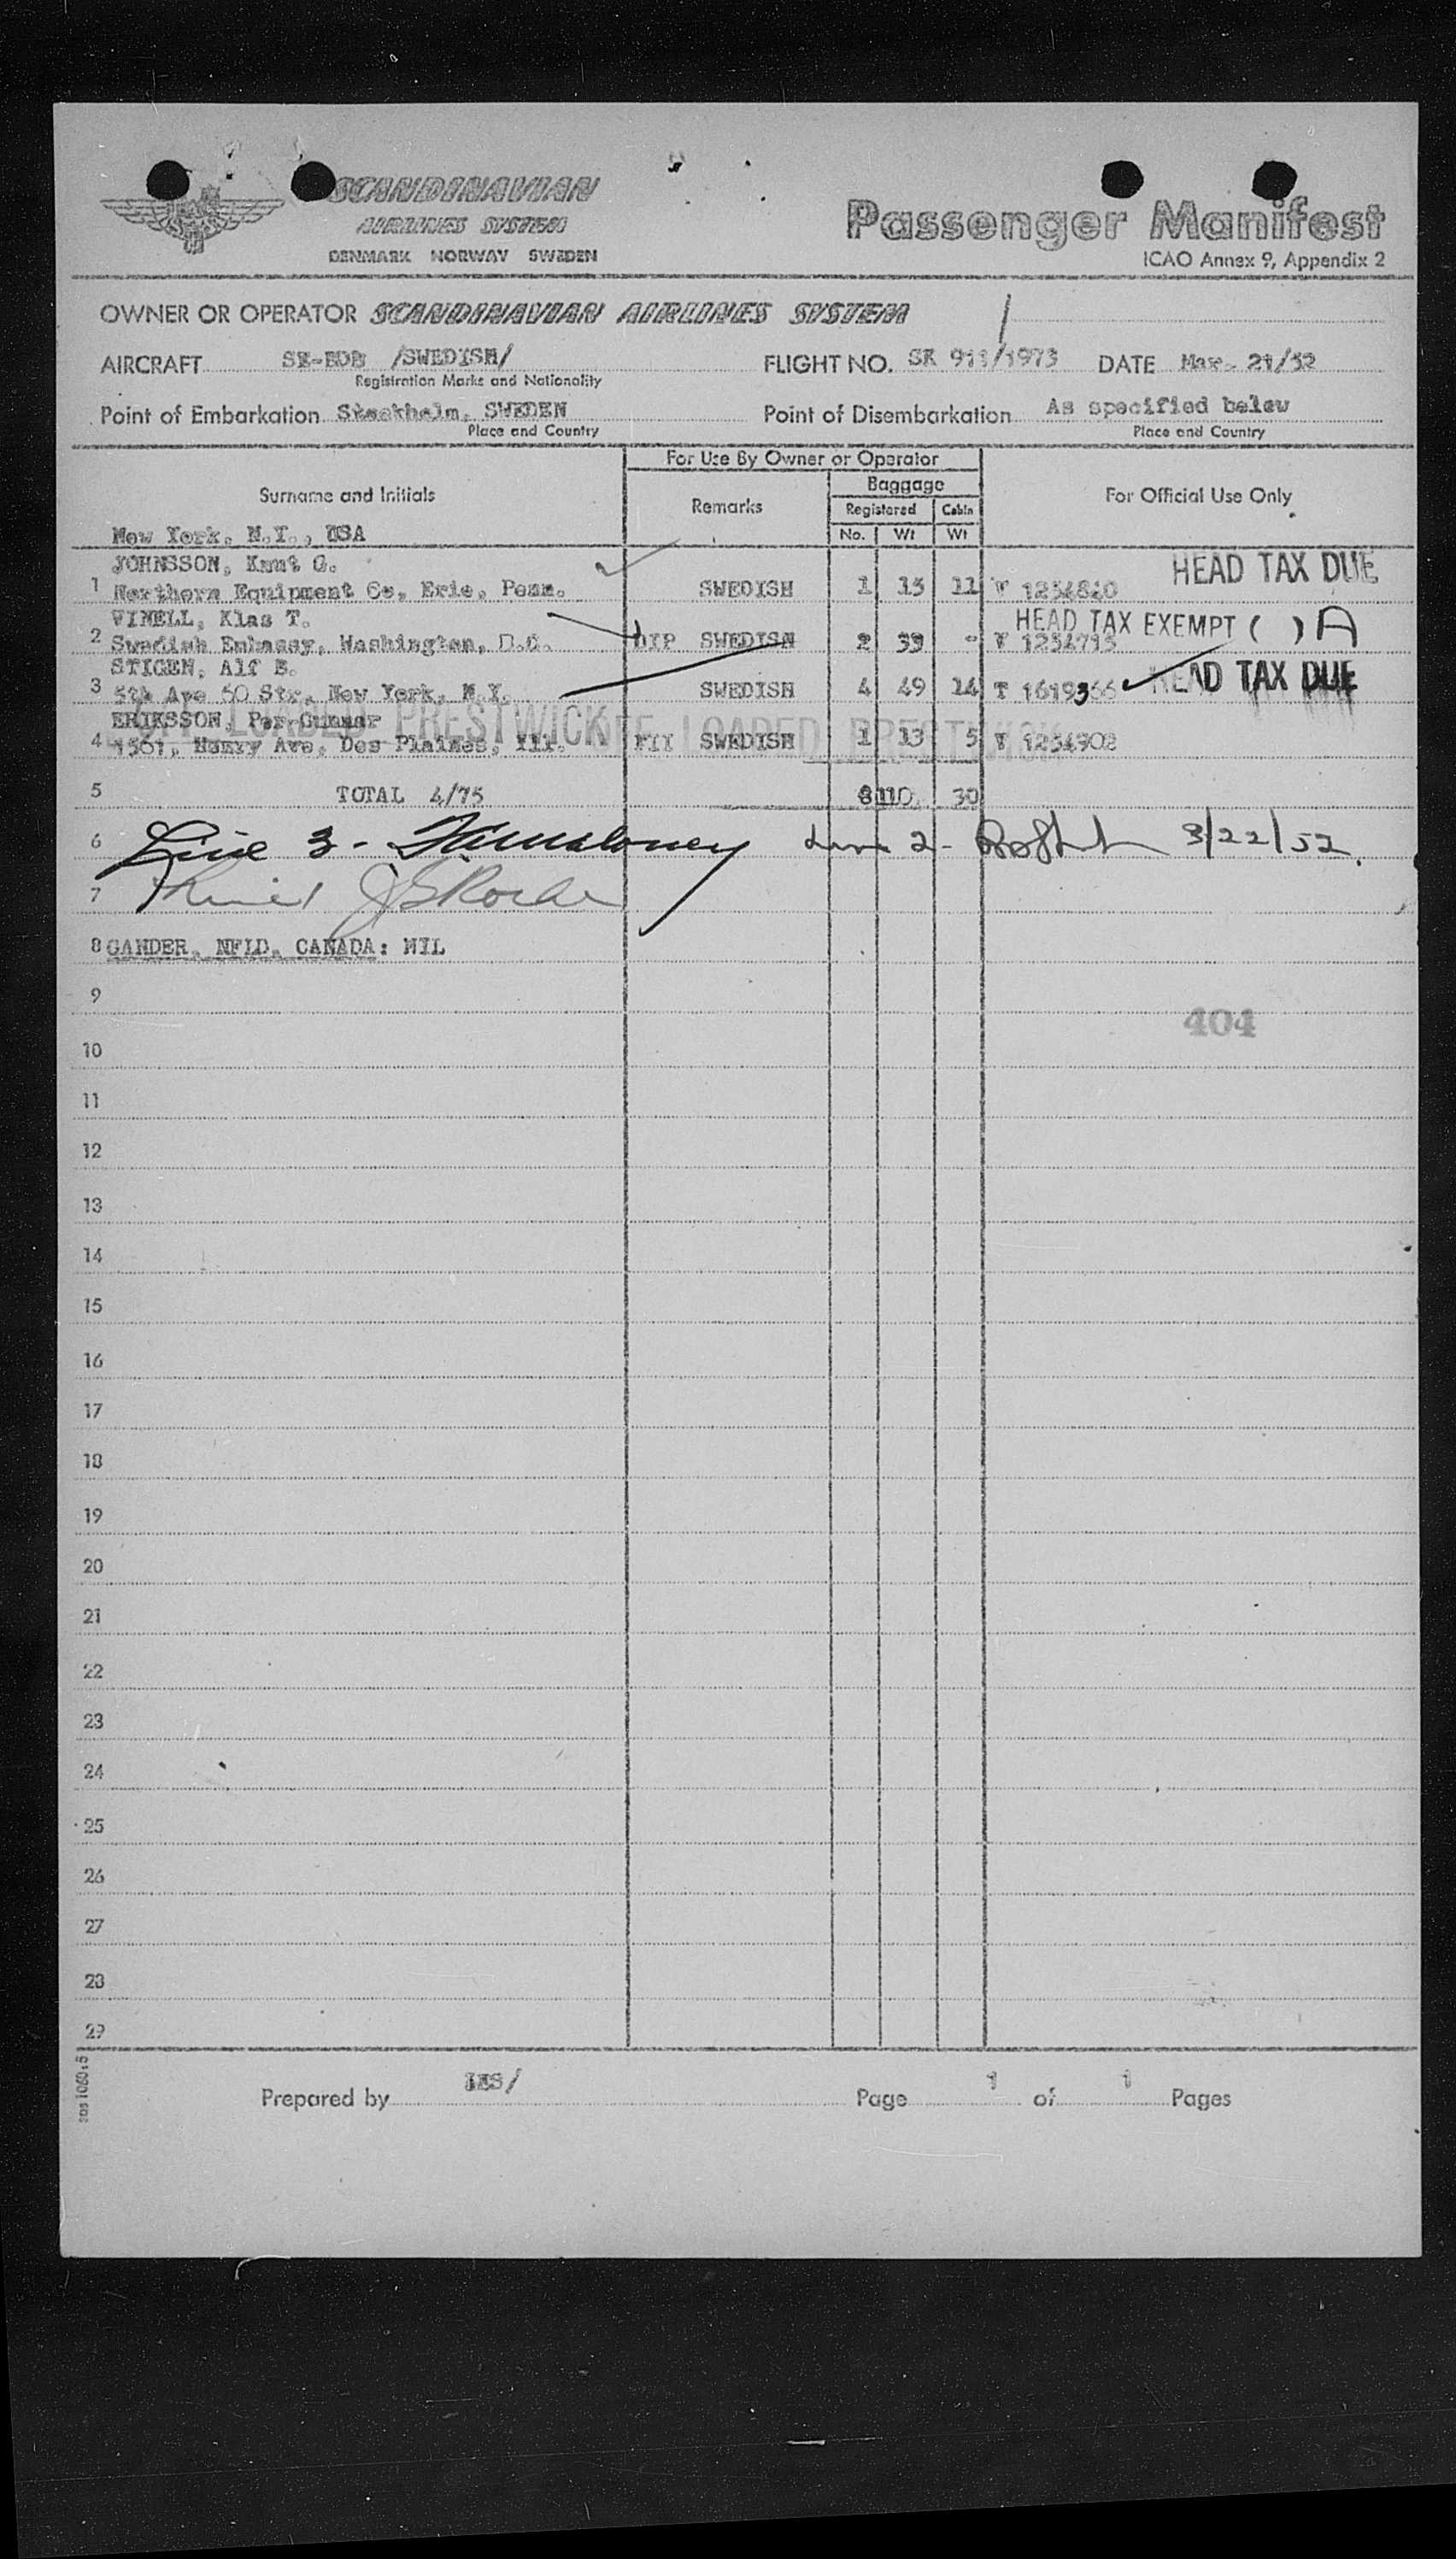 SCANDINAVIAN
AIRLINES SYSTEM
DENMARK NORWAY SWEDEN
Passenger Manifest
ICAO Annex 9, Appendix 2
OWNER OR OPERATOR SCANDINAVIAN AIRLINES SYSTEM
AIRCRAFT SE-BDB /SWEDISH/ FLIGHT NO. SK 911/1973 DATE Mar. 21/52
Registration Marks and Nationality
Point of Embarkation Stockholm, SWEDEN Point of Disembarkation As specified below
Place and Country Place and Country
For Use By Owner or Operator
Surname and Initials Remarks Baggage For Official Use Only
Registered Cabin
No. Wt Wt
New York, N.Y., USA
JOHNSSON, Knut G. HEAD TAX DUE
1 Northern Equipment Co, Erie, Penn. SWEDISH 1 15 11 V 1254820
VINELL, Klas T. HEAD TAX EXEMPT ( ) A
2 Swedish Embassy, Washington, D.C. DIP SWEDISH 2 33 - V 1254715
STIGEN, Alf B.
3 5th Ave 50 Str, New York, N.Y. SWEDISH 4 49 14 T 1619366 HEAD TAX DUE
ERIKSSON, Per-Gunnar
OFF LOADED PRESTWICK OFF LOADED PRESTWICK
4 1501, Henry Ave, Des Plaines, Ill. SWEDISH 1 13 5 V 1254902
5 TOTAL 4/75 8 110 30
6 Line 3 - Line 2 - 3/22/52.
7
8 GANDER, NFLD. CANADA: NIL
9
404
10
11
12
13
14
15
16
17
18
19
20
21
22
23
24
25
26
27
28
29
Prepared by Page 1 of 1 Pages